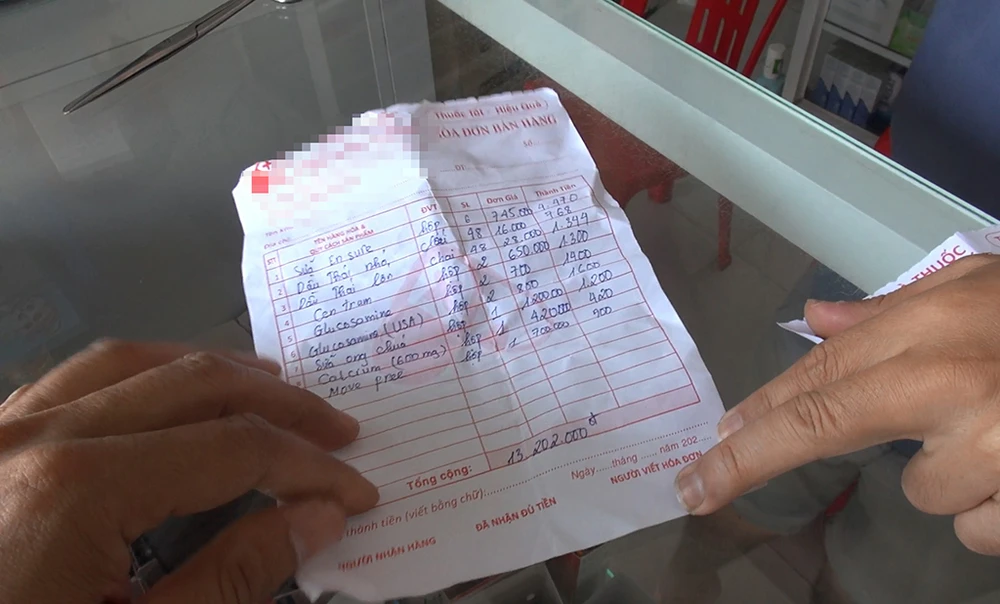 Thuốc Tốt - Hiệu Quả)
ÓA ĐƠN BÁN HÀNG
Số
ĐT
STT TÊN HÀNG HÓA & QUY CÁCH SẢN PHẨM ĐVT SL Đơn Giá Thành Tiền
1 Sữa Ensure hộp 6 745.000 4.470
2 Dầu Thái nhỏ chai 48 16.000 768
3 Dầu Thái lớn chai 48 28.000 1.344
4 Centrum hộp 2 650.000 1.300
Glucosamine hộp 2 700 1400
6 Glucosamine (USA) hộp 2 800 1.600
7 Sữa ong chúa hộp 1 1.200.000 1.200
8 Calcium (600mg) hộp 1 420.000 420
Move free hộp 1 700.000
Tổng cộng: 13 202.000đ
thành tiền (viết bằng chữ)
Ngày..... tháng ..... năm 202...
NGƯỜI NHẬN HÀNG ĐÃ NHẬN ĐỦ TIỀN NGƯỜI VIẾT HÓA ĐƠN
THUỐC